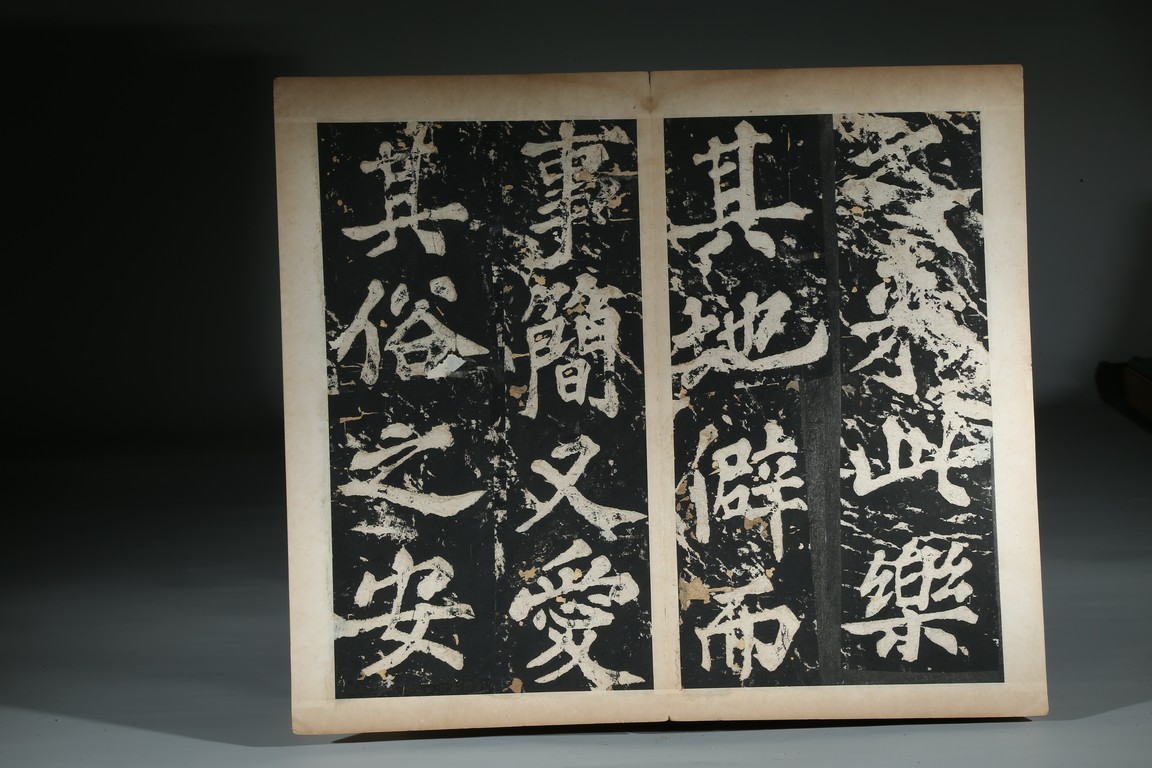 之來此樂
其地僻而
事簡又愛
其俗之安